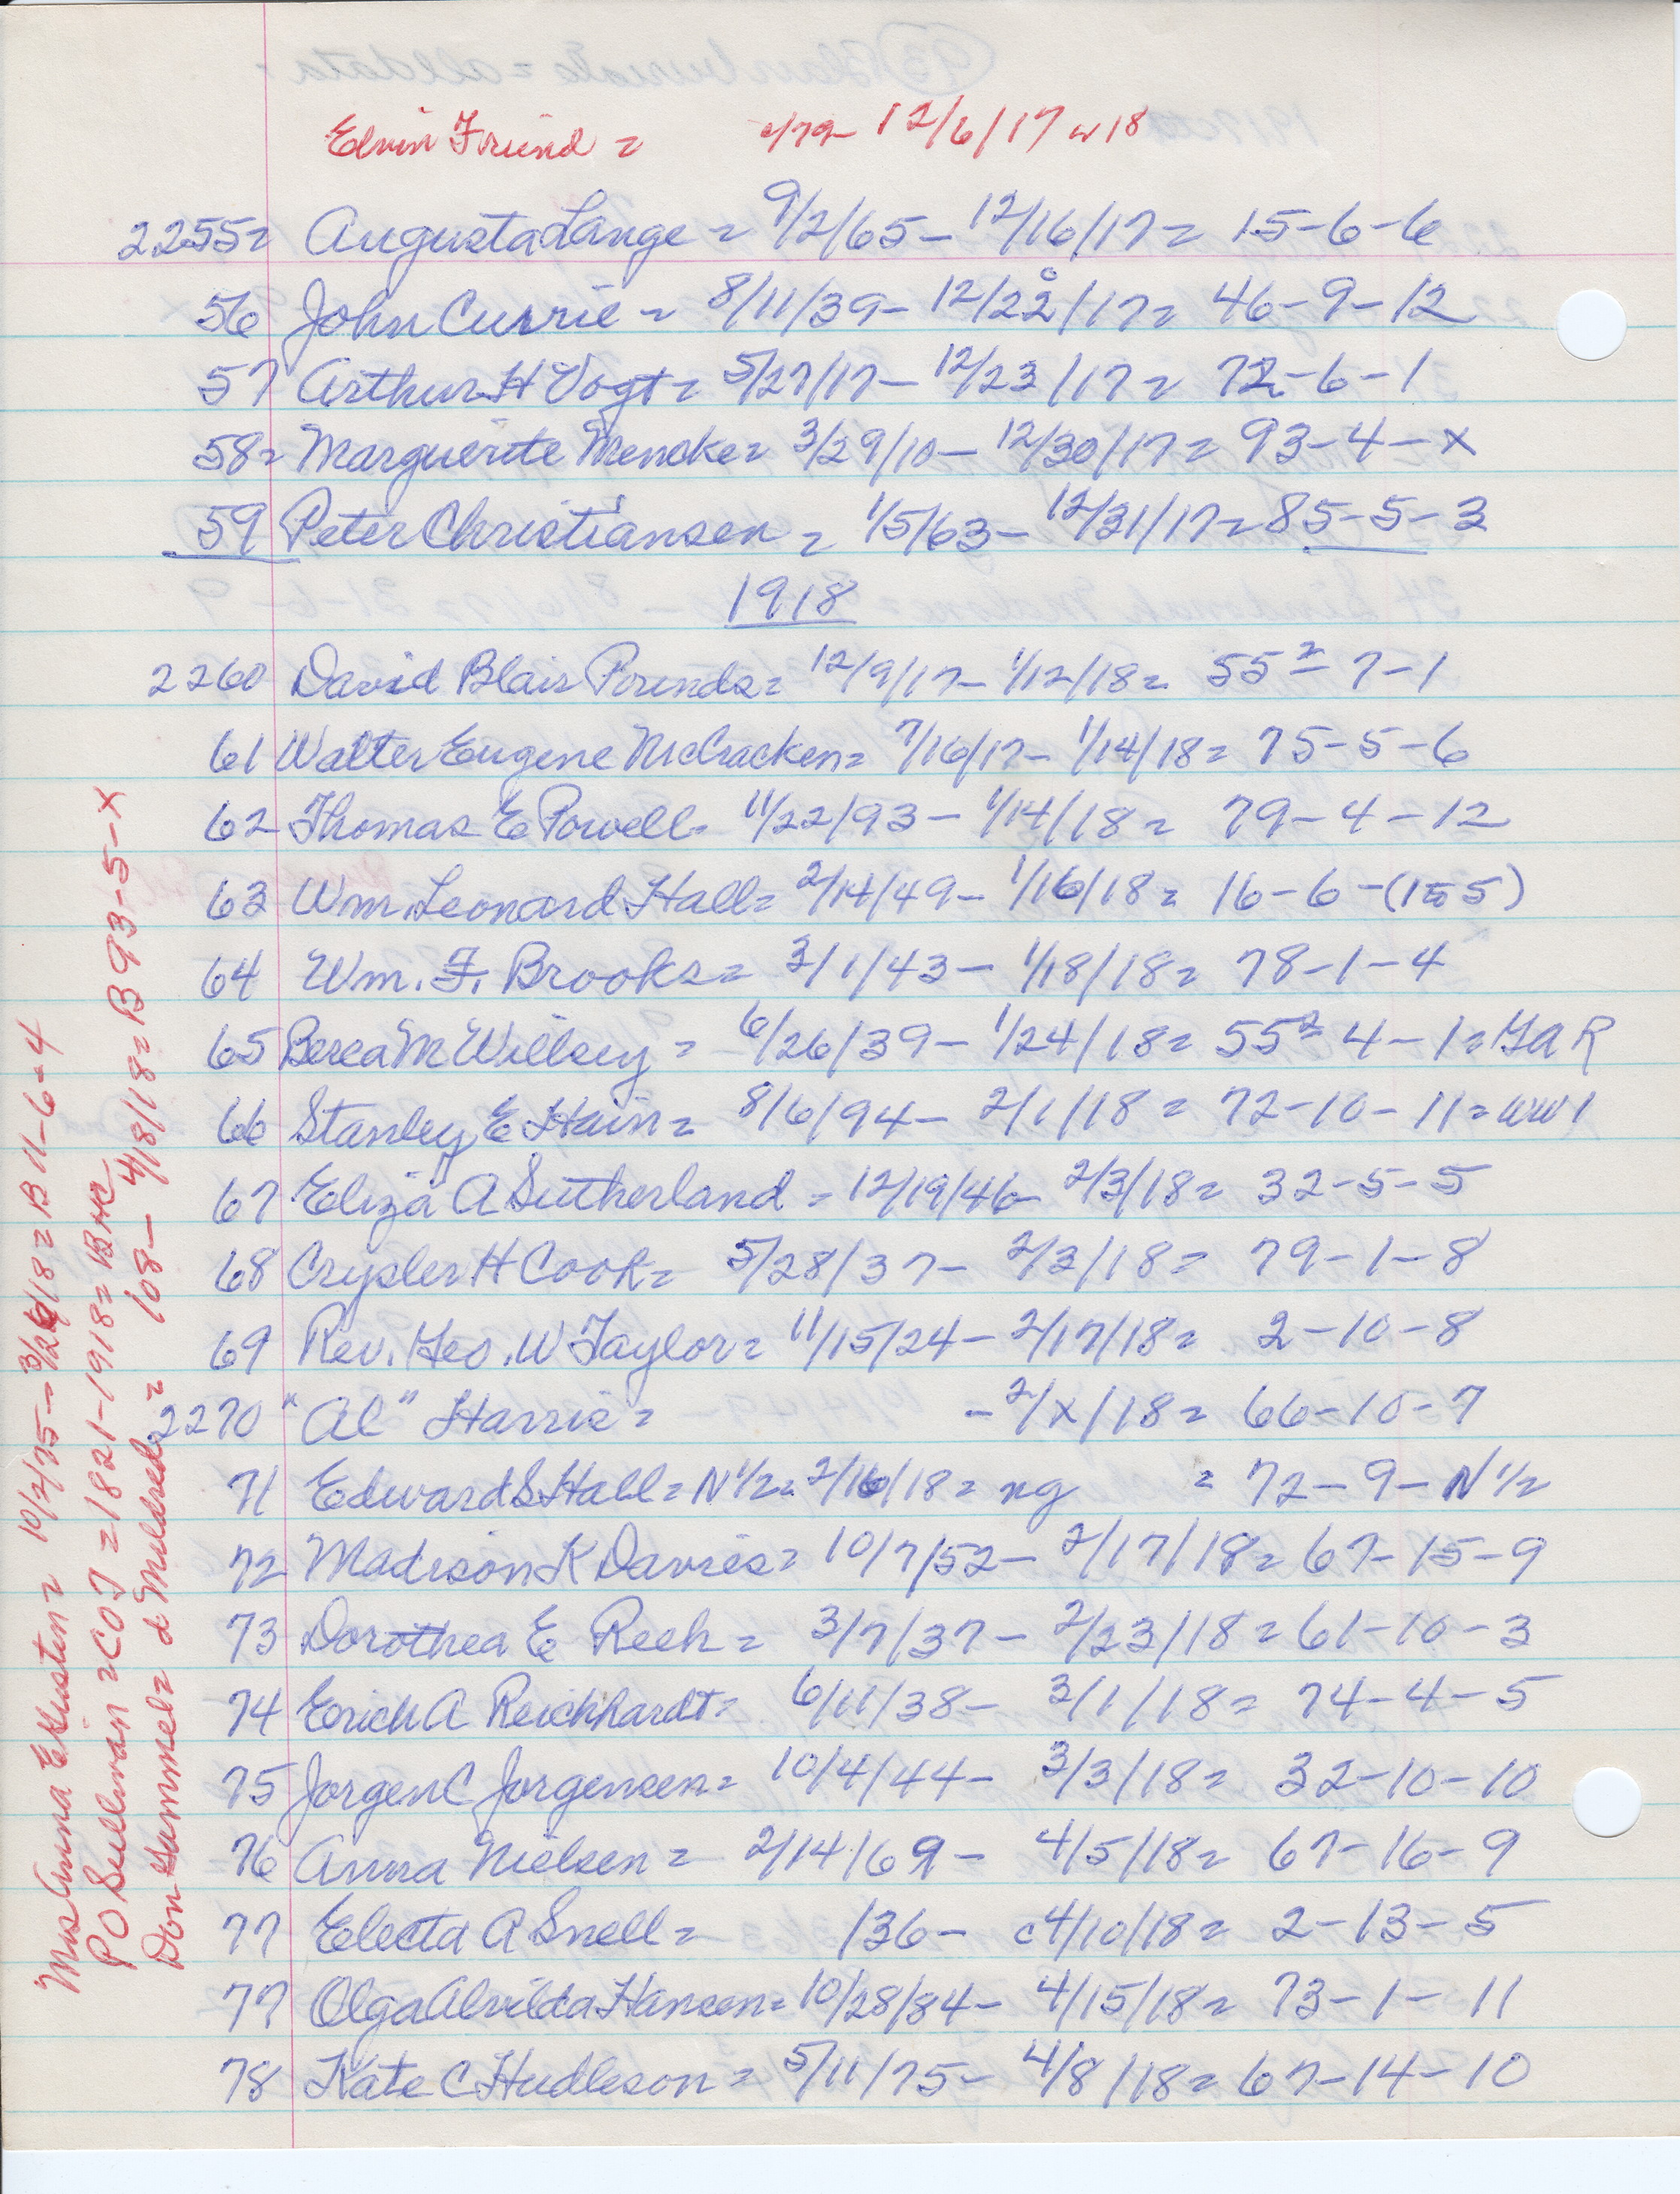 Elvin Friend = c/79- 12/6/17 w 18
2255= Augusta Lange = 9/2/65- 12/16/17= 15-6-6
56 John Currie = 8/11/39- 12/22/17= 46-9-12
57 Arthur H Vogt= 5/27/17- 12/23/17= 72-6-1
58= Marguerite Mencke= 3/29/10- 12/30/17= 93-4-x
59 Peter Christiansen = 1/5/63- 12/31/17= 85-5-3
1918
2260 David Blair Pounds= 12/9/17- 1/12/18= 55²-7-1
61 Walter Eugene McCracken= 7/16/17- 1/14/18= 75-5-6
62 Thomas E Powell= 11/22/93- 1/14/18= 79-4-12
63 Wm. Leonard Hall= 2/14/49- 1/16/18= 16-6-(1to5)
64 Wm. F. Brooks= 3/1/43- 1/18/18= 78-1-4
65 Berea M Willsey = 6/26/39- 1/24/18= 55²-4-1= GAR
66 Stanley E Hain= 8/6/94- 2/1/18= 72-10-11= WW1
67 Eliza A Sutherland = 12/19/46- 2/3/18= 32-5-5
68 Crysler H Cook= 5/28/37- 2/3/18= 79-1-8
69 Rev. Geo. W Taylor= 11/15/24- 2/17/18= 2-10-8
2270 "Al" Harris= -2/x/18= 66-10-7
71 Edward S Hall= N½= 2/16/18= ng = 72-9-N½
72 Madison K Davies= 10/7/52- 2/17/18= 67-15-9
73 Dorothea E Reeh= 3/7/37- 2/23/18= 61-10-3
74 Erich A Reichhardt= 6/11/38- 3/1/18= 74-4-5
75 Jorgen C Jorgensen= 10/4/44- 3/3/18= 32-10-10
76 Anna Nielsen= 2/14/69- 4/5/18= 67-16-9
77 Electa A Snell= /36- c4/10/18= 2-13-5
77 Olga Alvilda Hansen= 10/28/84- 4/15/18= 73-1-11
78 Kate C Hudleson= 5/11/75- 4/8/18= 67-14-10
Mrs Anna E = 10/2/75- 18= B 11-6-4
P O Sullivan = CO J = 1821-1918= B
Don Hummel= d Mildred= 108- 4/8/18= B 93-5-x